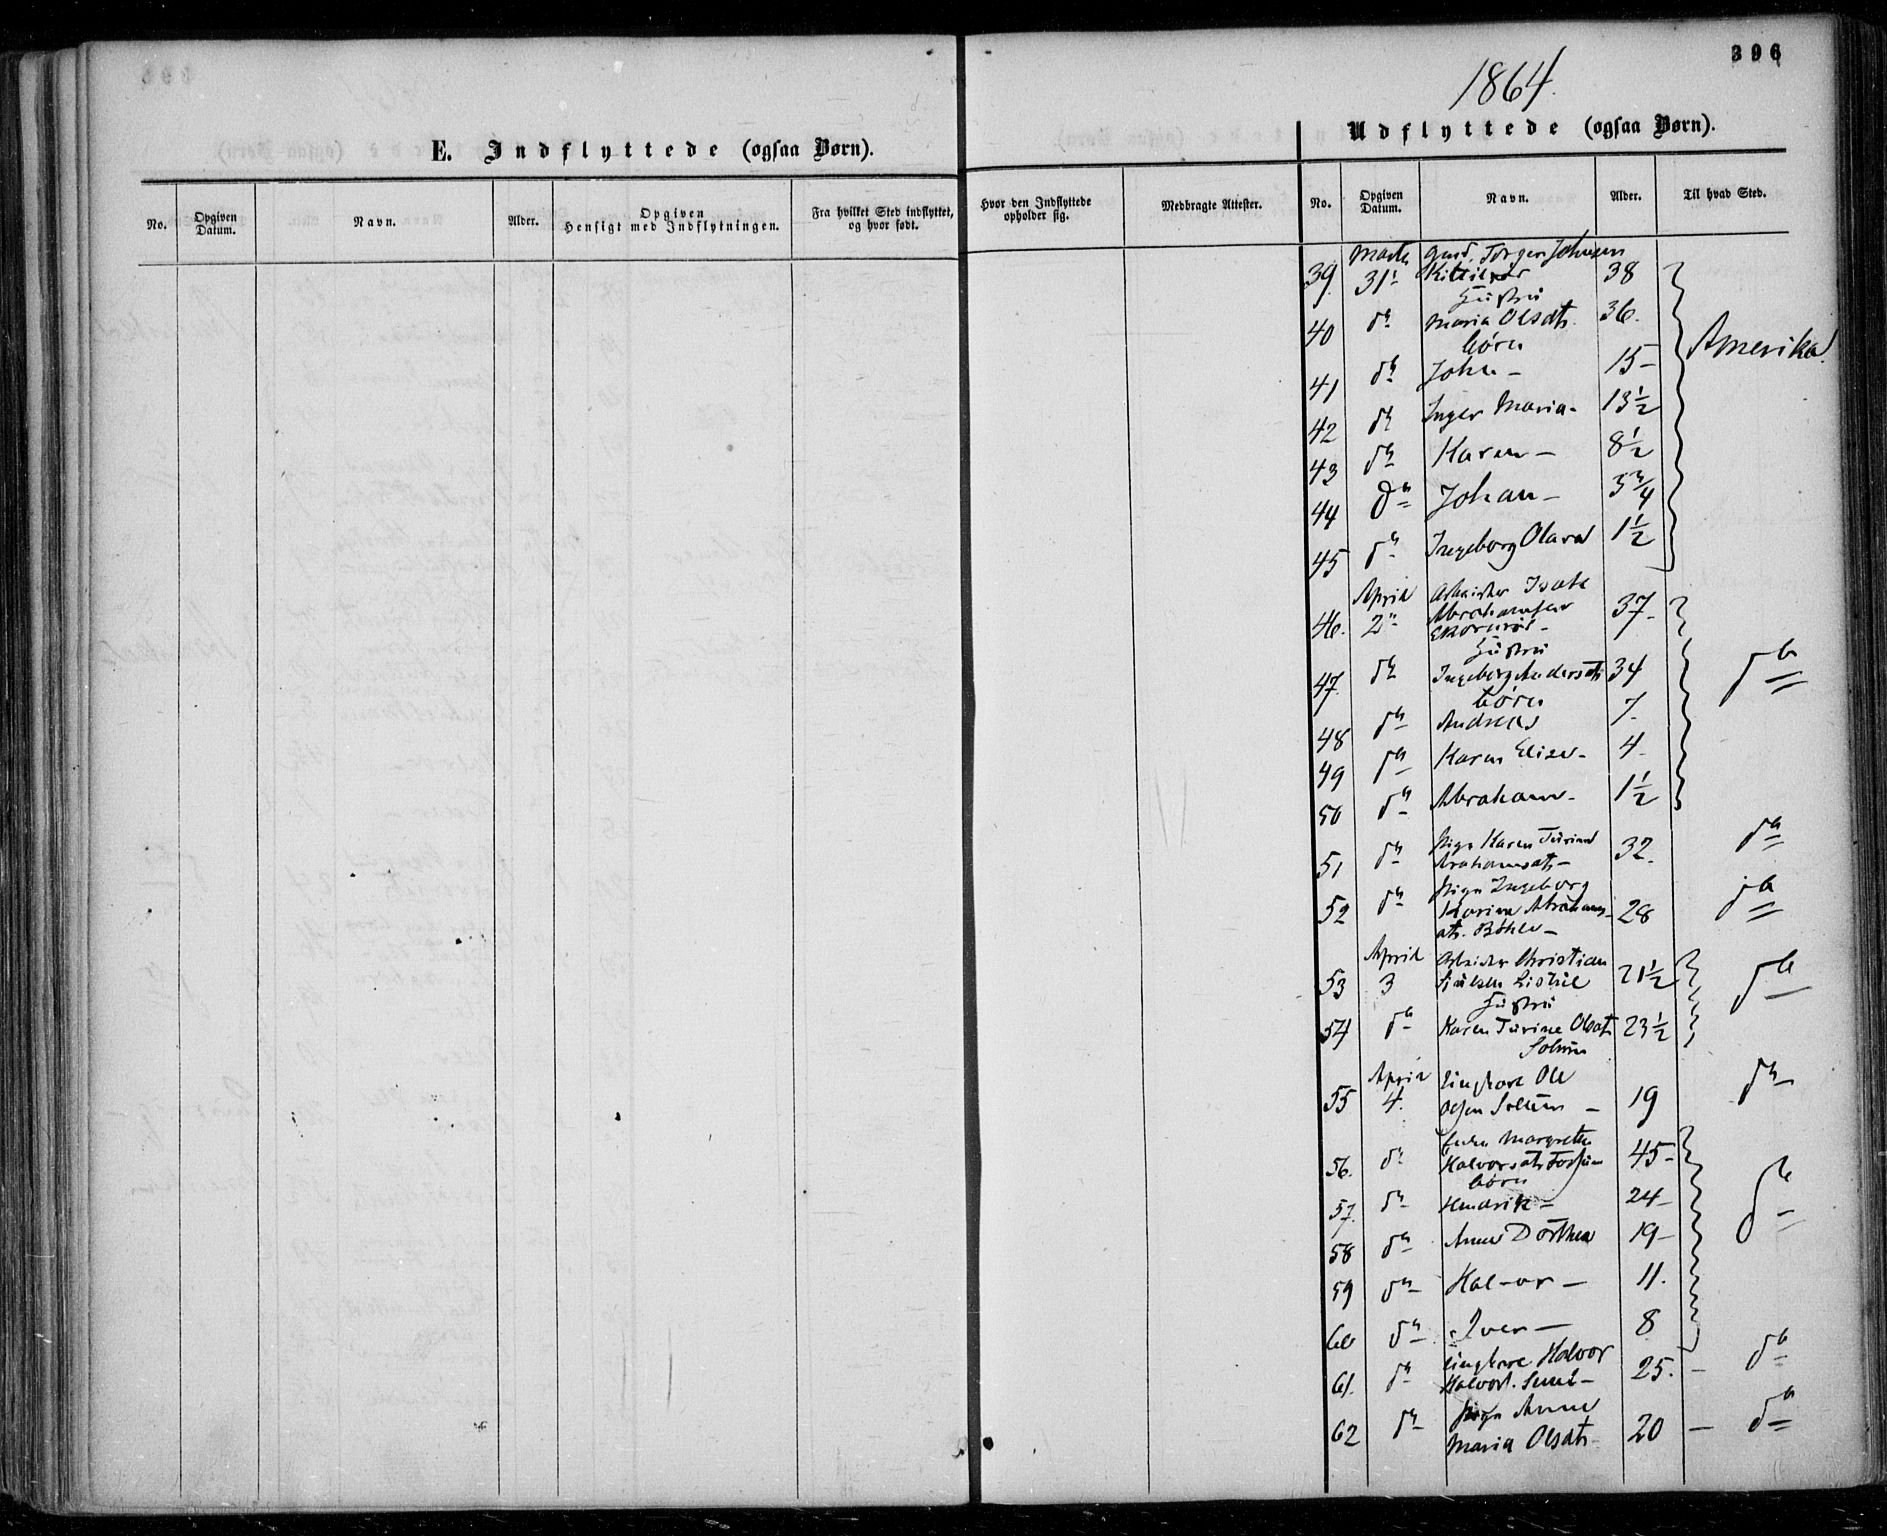 396
1864.
E. Indflyttede (ogsaa Børn).
Udflyttede (ogsaa Børn).
No. Opgiven Datum. Navn. Alder. Opgiven Hensigt med Indflytningen. Fra hvilket Sted indflyttet, og hvor født. Hvor den Indflyttede opholder sig. Medbragte Attester. No. Opgiven Datum. Navn. Alder. Til hvad Sted.
Marts Gmd. Torger Johnsen
39. 31 38
Hustru
40 do Maria Olsdtr. 36. Amerika.
børn
41 do John - 15-
42 do Inger Maria- 13 1/2
43 do Karen - 8 1/2
44 do Johan - 5 3/4
45 do Ingeborg Olava 1 1/2
April Arbeider Isak
46. 2 Abrahamsen 37-
Hustru
47. do Ingeborg Andersdtr 34 do
børn
48 do Andreas 7.
49 do Karen Elise- 4-
50 do Abraham- 1 1/2
51 do Pige Karen Turine 32. do
Abrahamsdtr-
do Pige Ingeborg
52 Karine Abrahams- 28 do
dtr. Bøhle-
April Arbeider Christian
53 3 21 1/2 do
Hustru
54 do Karen Turine Olsdtr 23 1/2
Solum
April Ungkarl Ole
55 4. Olsen Solum - 19 do
Enke Margrethe
56. do Halvorsdtr 45- do
børn
57. do Hendrik- 24-
58 do Anne Dorthea 19-
59 do Halvor - 11.
60 do Iver - 8
61. do Ungkarl Halvor 25. - do
Halvors.
62 do Pige Anne 20 - do
Maria Olsdtr-